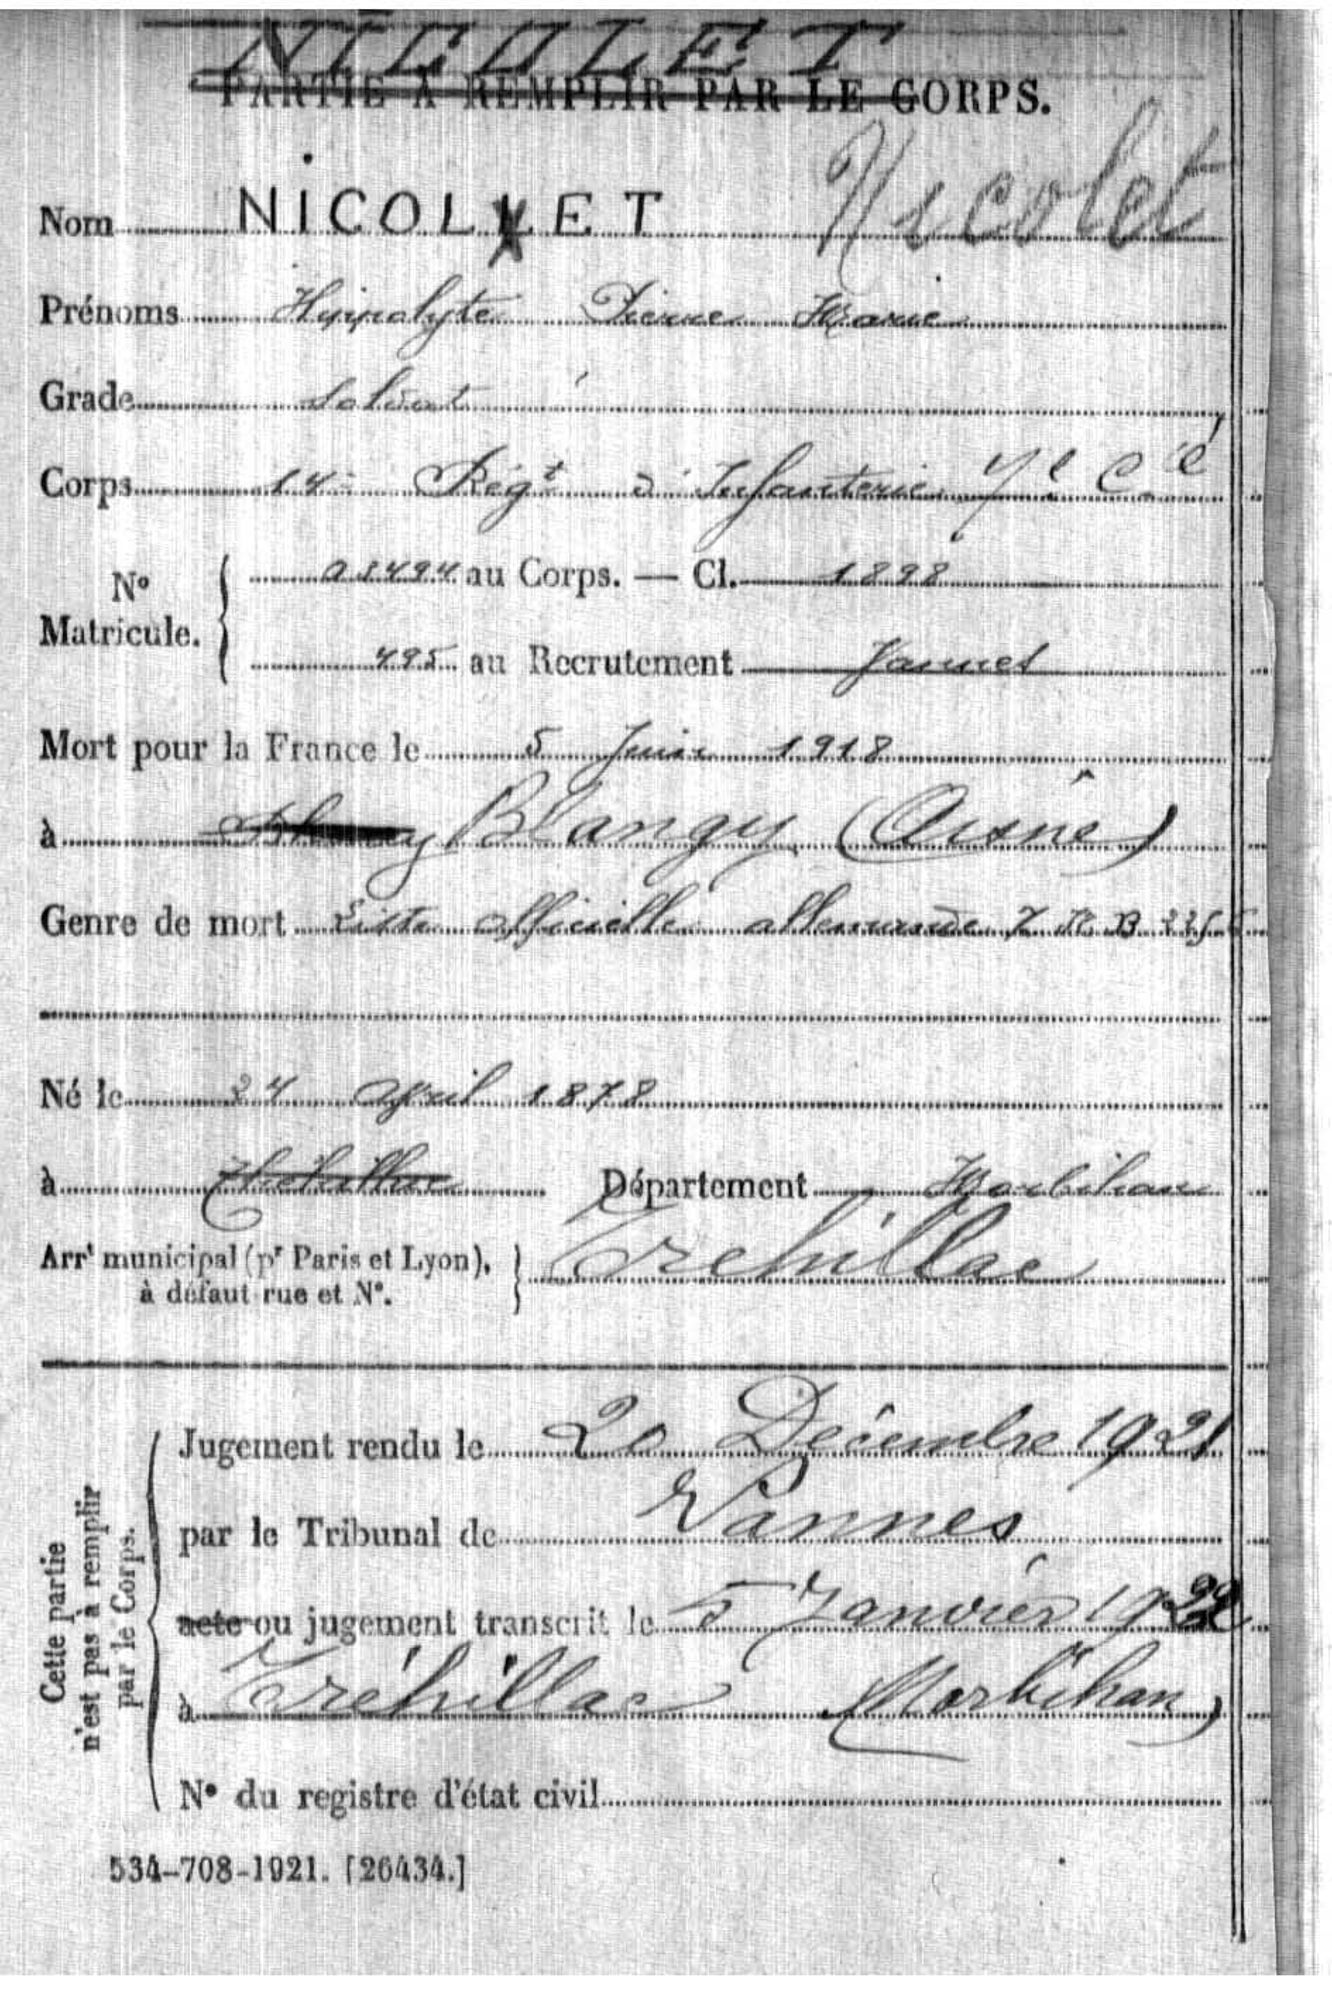 NICOLET
PARTIE À REMPLIR PAR LE CORPS.
Nom NICOLLET Nicolet
Prénoms Hippolyte Pierre Marie
Grade Soldat
Corps 14e Régt d'Infanterie 7e Cie
No Matricule. { 03494 au Corps. — Cl. 1898
495 au Recrutement Vannes
Mort pour la France le 5 Juin 1918
à Blangy (Aisne)
Genre de mort Liste officielle allemande
Né le 24 April 1878
à Théhillac Département Morbihan
Arrt municipal (pr Paris et Lyon), } Tréhillac
à défaut rue et No.
Cette partie n'est pas à remplir par le Corps.
Jugement rendu le 20 Décembre 1921
par le Tribunal de Vannes
acte ou jugement transcrit le 5 Janvier 1922
à Tréhillac (Morbihan)
No du registre d'état civil
534-708-1921. [26434.]